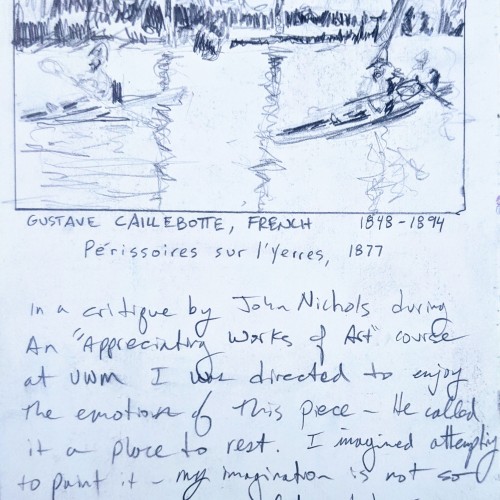 GUSTAVE CAILLEBOTTE, FRENCH 1848-1894
Périssoires sur l'Yerres, 1877
In a critique by John Nichols during
An "Appreciating Works of Art" course
at UWM I was directed to enjoy
The emotion of This piece - He called
it a place to rest. I imagined attempting
to paint it - my imagination is not so